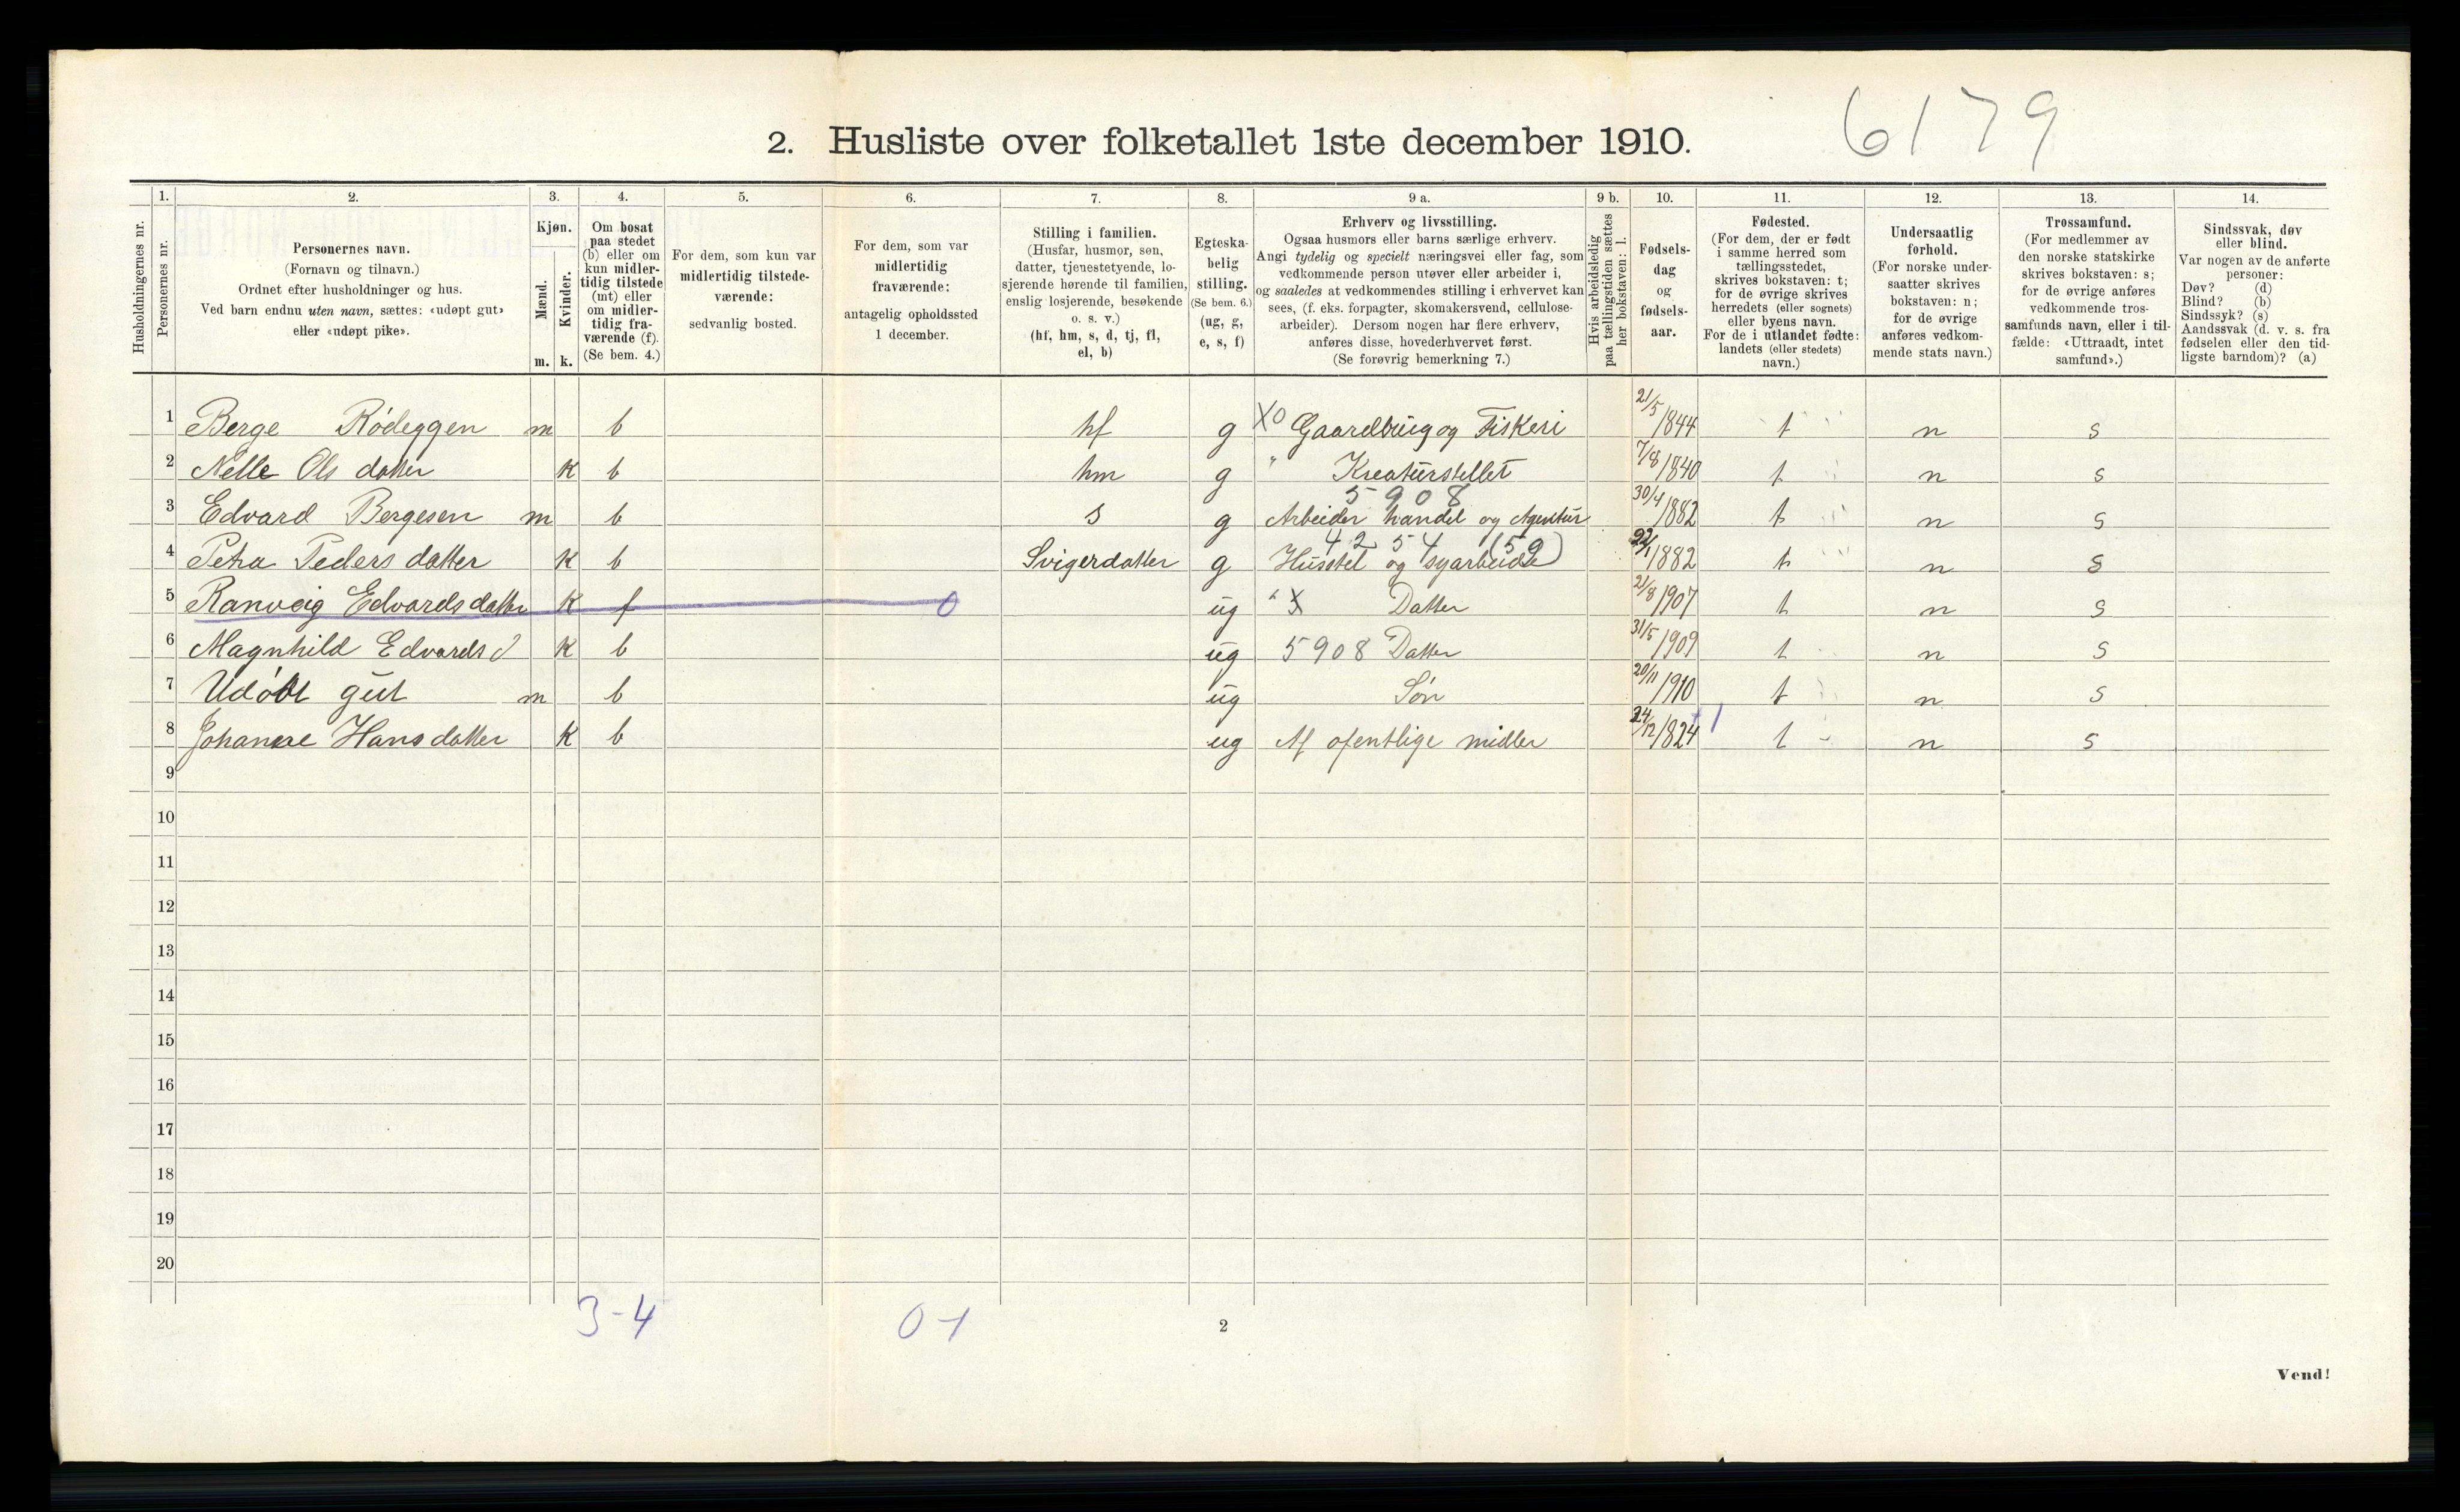 6179
2. Husliste over folketallet 1ste december 1910.
Husholdningernes nr.
1.
Personernes nr.
2.
Personernes navn.
(Fornavn og tilnavn.)
Ordnet efter husholdninger og hus.
Ved barn endnu uten navn, sættes: «udøpt gut»
eller «udøpt pike».
3.
Kjøn.
Mænd.
Kvinder.
m. k.
4.
Om bosat
paa stedet
(b) eller om
kun midler-
tidig tilstede
(mt) eller
om midler-
tidig fra-
værende (f).
(Se bem. 4.)
5.
For dem, som kun var
midlertidig tilstede-
værende:
sedvanlig bosted.
6.
For dem, som var
midlertidig
fraværende:
antagelig opholdssted
1 december.
7.
Stilling i familien.
(Husfar, husmor, søn,
datter, tjenestetyende, lo-
sjerende hørende til familien,
enslig losjerende, besøkende
o. s. v.)
(hf, hm, s, d, tj, fl,
el, b)
8.
Egteska-
belig
stilling.
(Se bem. 6.)
(ug, g,
e, s, f)
9 a.
Erhverv og livsstilling.
Ogsaa husmors eller barns særlige erhverv.
Angi tydelig og specielt næringsvei eller fag, som
vedkommende person utøver eller arbeider i,
og saaledes at vedkommendes stilling i erhvervet kan
sees, (f. eks. forpagter, skomakersvend, cellulose-
arbeider). Dersom nogen har flere erhverv,
anføres disse, hovederhvervet først.
(Se forøvrig bemerkning 7.)
9 b.
Hvis arbeidsledig
paa tællingstiden sættes
her bokstaven: l.
10.
Fødsels-
dag
og
fødsels-
aar.
11.
Fødested.
(For dem, der er født
i samme herred som
tællingsstedet,
skrives bokstaven: t;
for de øvrige skrives
herredets (eller sognets)
eller byens navn.
For de i utlandet fødte:
landets (eller stedets)
navn.)
12.
Undersaatlig
forhold.
(For norske under-
saatter skrives
bokstaven: n;
for de øvrige
anføres vedkom-
mende stats navn.)
13.
Trossamfund.
(For medlemmer av
den norske statskirke
skrives bokstaven: s;
for de øvrige anføres
vedkommende tros-
samfunds navn, eller i til-
fælde: «Uttraadt, intet
samfund».)
14.
Sindssvak, døv
eller blind.
Var nogen av de anførte
personer:
Døv? (d)
Blind? (b)
Sindssyk? (s)
Aandssvak (d. v. s. fra
fødselen eller den tid-
ligste barndom)? (a)
1 Berge Rödeggen m b hf g X0 Gaardbrug og Fiskeri 21/5 1844 t n s
2 Nelle Ols datter k b hm g " Kreaturstellet 7/8 1840 t n s
5908
3 Edvard Bergesen m b s g Arbeider handel og Agentur 30/4 1882 t n s
4254 (59)
4 Petra Peders datter k b Svigerdatter g Husstel og syarbeide 22/1 1882 t n s
5 Ranveig Edvards datter k f 0 ug "X Datter 21/8 1907 t n s
6 Magnhild Edvards d k b ug 5908 Datter 31/5 1909 t n s
7 Udöbt gut m b ug Søn 20/11 1910 t n s
8 Johanne Hans datter k b ug Af ofentlige midler 24/12 1824 +1 t - n s
9
10
11
12
13
14
15
16
17
18
19
20
3-4 0-1
2
Vend!